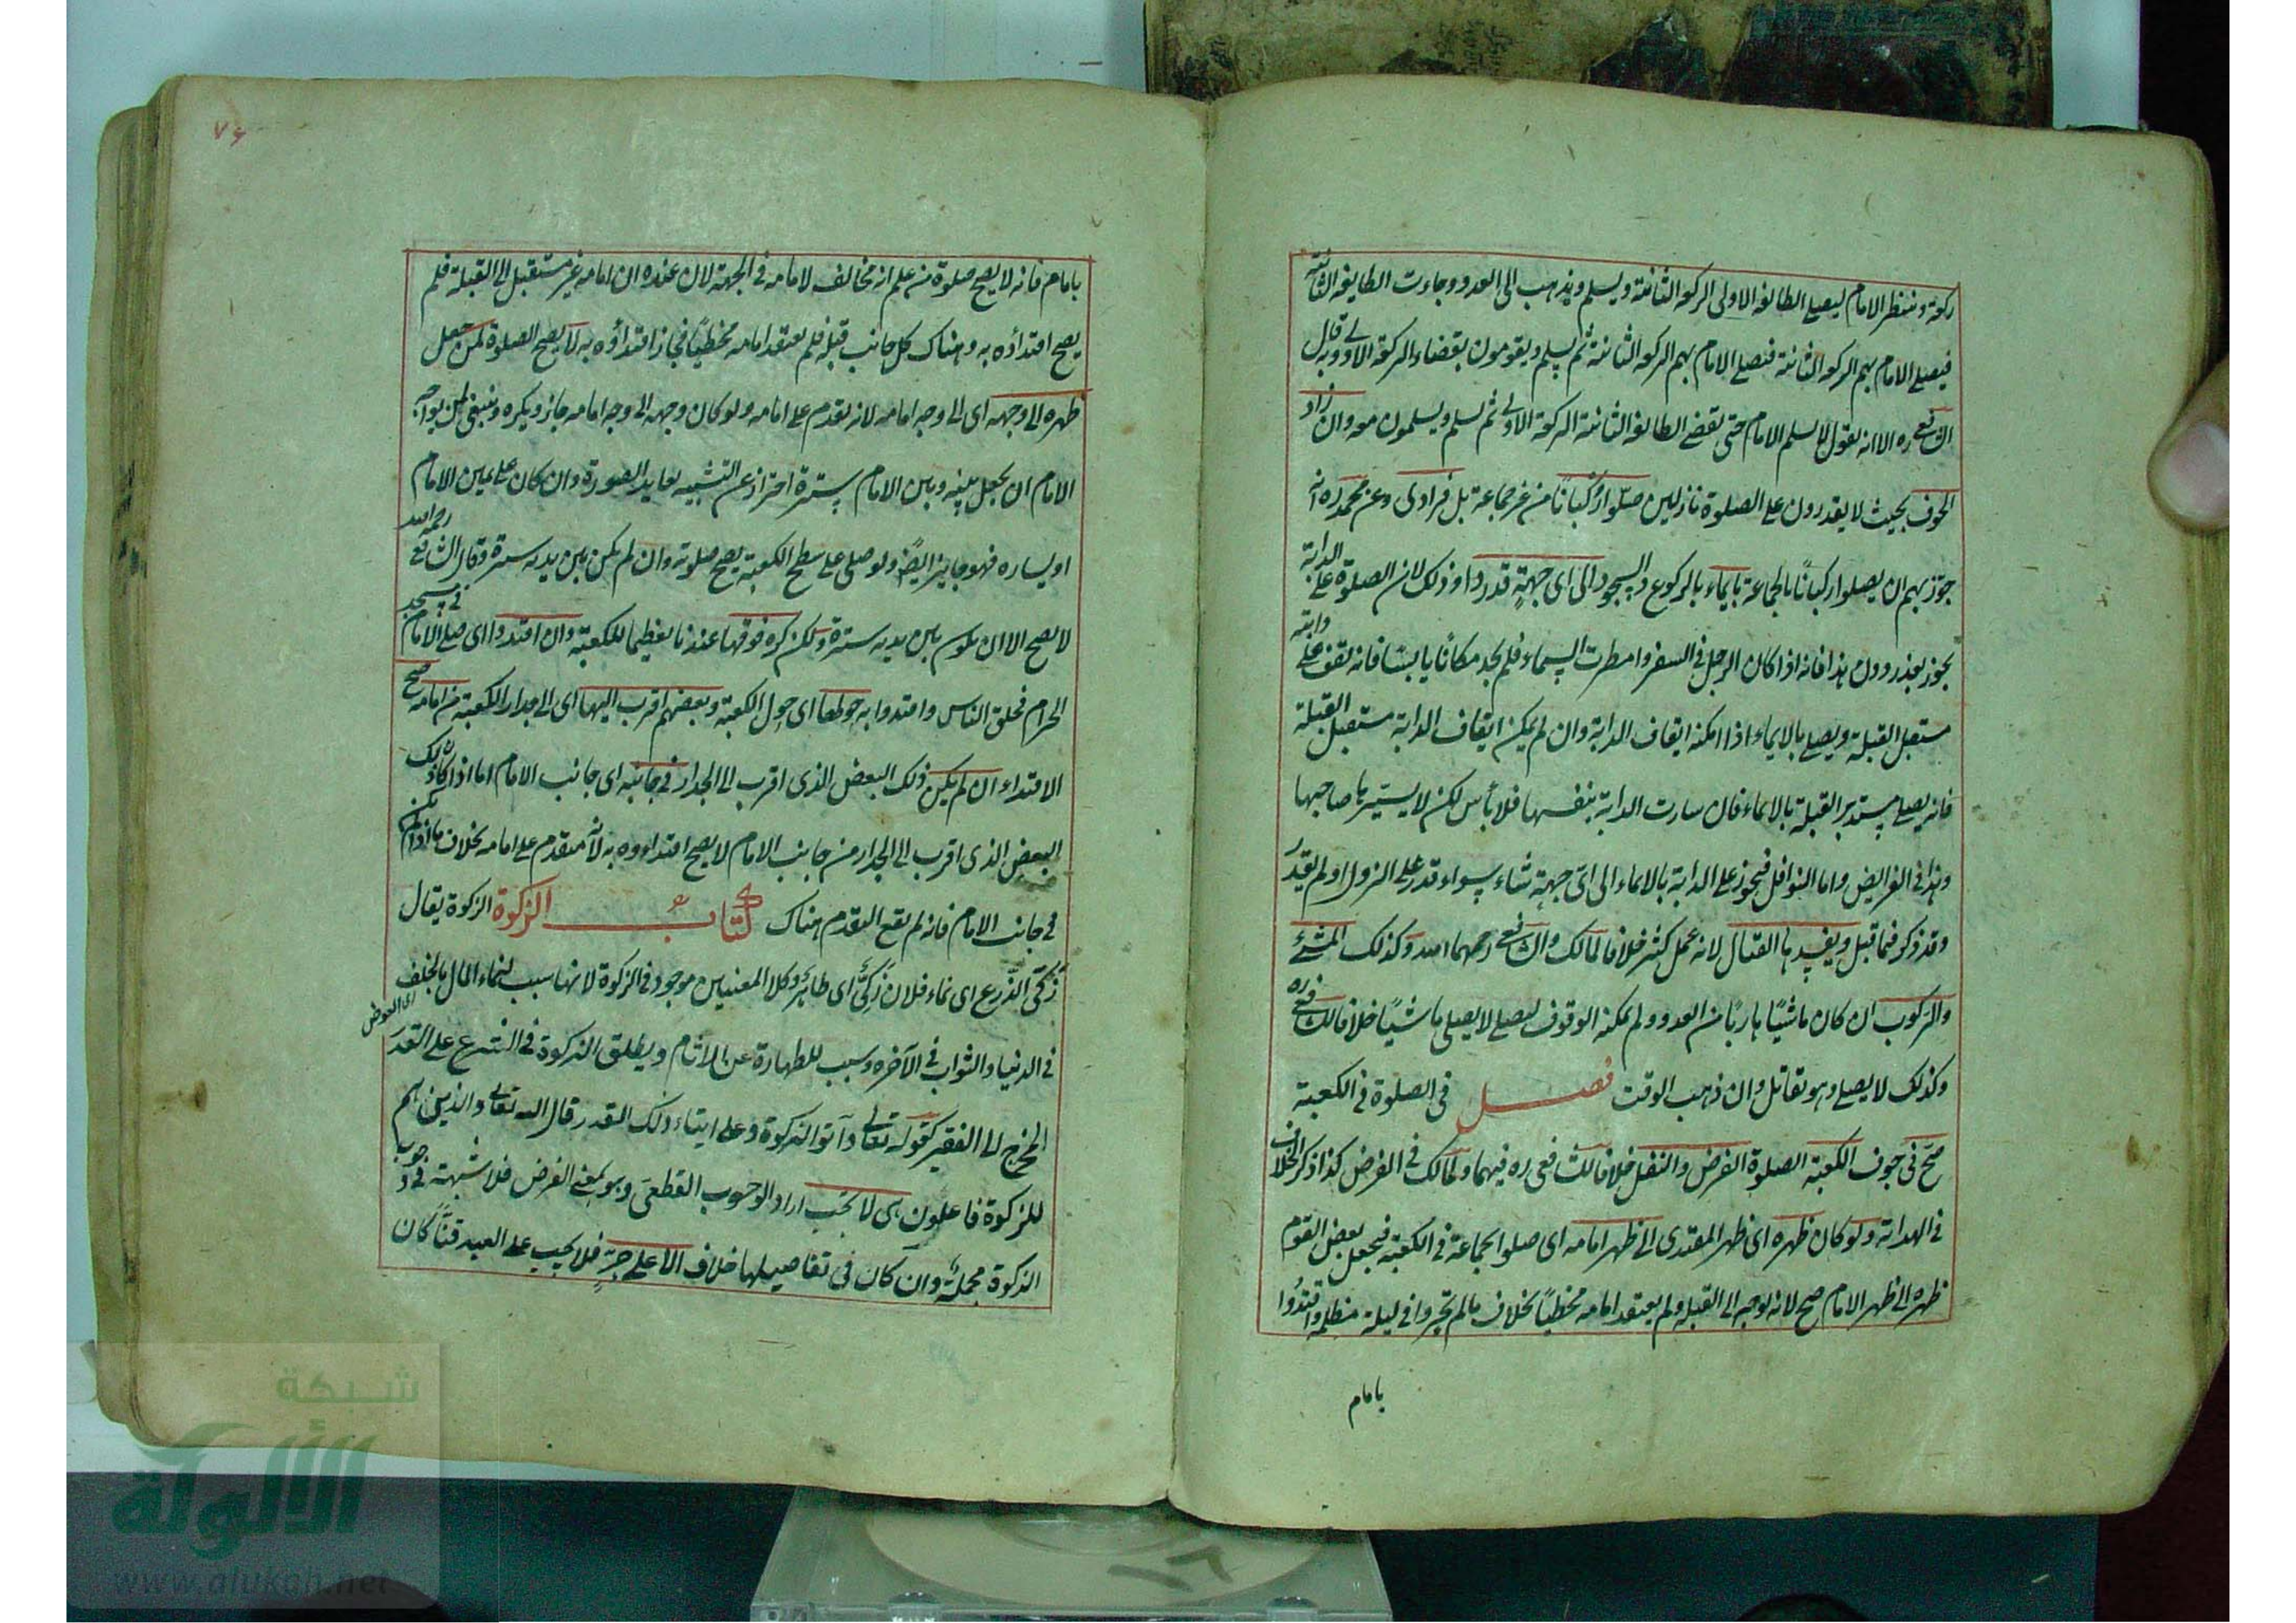 ركعة وينتظر الامام ليصلي الطائفة الاولى الركعة الثانية ويسلم ويذهب الى العدو وجاءت الطايفة الثانية
فيصلي الامام بهم الركعة الثانية فيصلي الامام بهم الركعة الثانية ثم يسلم ويقومون بقضاء الركعة الاولى وبه قال
الشافعي ره الا انه يقول لا يسلم الامام حتى يقضي الطايفة الثانية الركعة الاولى ثم يسلم ويسلمون معه وان زاد
الخوف بحيث لا يقدرون على الصلوة نازلين صلّوا ركبانًا من غير جماعة بل فرادى وعن محمد ره انه
جوّز بهم ان يصلوا ركبانًا بالجماعة بايماء بالركوع والسجود الى اى جهةٍ قدروا وذلك لان الصلوة على الدابة
يجوز بعذر ودل هذا فانه اذا كان الرجل فى السفر وامطرت السماء فلم يجد مكانًا يابسًا فانه يقف على دابته
مستقبل القبلة ويصلي بالايماء اذا امكنه ايقاف الدابة وان لم يمكن ايقاف الدابة مستقبل القبلة
فانه يصلي مستدبر القبلة بالايماء فان سارت الدابة بنفسها فلا بأس لكن لا يسيّرها صاحبها
وهذا فى الفرايض واما النوافل فيجوز على الدابة بالايماء الى اىّ جهة شاء سواء قدر على النزول او لم يقدر
وقد ذكر فيما قبل ويفسدها القتال لانه عمل كثير خلافا لمالك والشافعي رحمهما الله وكذلك المشي
والركوب ان كان ماشيًا هاربًا من العدو ولم يمكنه الوقوف ليصلي لا يصلي ماشيًا خلافا للشافعي ره
وكذلك لا يصلي وهو يقاتل وان ذهب الوقت فصل فى الصلوة فى الكعبة
صحّ فى جوف الكعبة الصلوة الفرض والنفل خلافا للشافعى ره فيهما ولمالك فى الفرض كذا ذكر الخلاف
فى الهداية ولو كان ظهره اى ظهر المقتدى الى ظهر امامه اى صلوا بجماعة فى الكعبة فيجعل بعض القوم
ظهره الى ظهر الامام صح لانه توجه الى القبلة ولم يعتقد امامه مخطيًا بخلاف ما لم تحروا فى ليلة مظلمة واقتدوا
بامام
٧٤
بامام فانه لا يصح صلوة من علم انه مخالف لامامه فى الجهة لان عنده ان امامه غير مستقبل الى القبلة فلم
يصح اقتداؤه به وهناك كل جانب قبلة فلم يعتقد امامه مخطيًا فجاز اقتداؤه به لا يصح الصلوة لمن جعل
ظهره الى وجهه اى الى وجه امامه لانه تقدم على امامه ولو كان وجهه الى وجه امامه جاز ويكره وينبغى لمن يواجه
الامام ان يجعل بينه وبين الامام سترة احترازا عن التشبيه بعابد الصورة وان كان على يمين الامام
او يساره فهو جايز ايضًا ولو صلى على سطح الكعبة يصح صلوته وان لم يكن بين يديه سترة وقال الشافعي رحمه الله
لا يصح الا ان يكون بين يديه سترة ولكن كره فوقها عندنا تعظيما للكعبة وان اقتدوا اى صلى الامام فى مسجد
الحرام فحلق الناس واقتدوا به حولها اى حول الكعبة وبعضهم اقرب اليها اى الى جدار الكعبة من امامه صح
الاقتداء ان لم يكن ذلك البعض الذى اقرب الى الجدار فى جانبه اى جانب الامام اما اذا كان ذلك
البعض الذى اقرب الى الجدار من جانب الامام لا يصح اقتداؤه به لانه متقدم على امامه بخلاف ما اذا لم يكن
فى جانب الامام فانه لم يقع التقدم هناك كتاب الزكوة الزكوة يقال
زكى الزرع اى نماء فلان زكىّ اى طاهر وكلا المعنيين موجود فى الزكوة لانها سبب لنماء المال بالخلف
اى العوض
فى الدنيا والثواب فى الآخرة وسبب للطهارة عن الآثام ويطلق الزكوة فى الشرع على القدر
المخرج الى الفقير كقوله تعالى وآتوا الزكوة وعلى ايتاء ذلك القدر قال الله تعالى والذين هم
للزكوة فاعلون هى لا تجب اراد الوجوب القطعى وهو بمعنى الفرض فلا شبهة فى وجوب
الزكوة مجملة وان كان فى تفاصيلها خلاف الا على حرٍ فلا يجب على العبد قنًّا كان
شبكة
الألوكة
www.alukah.net